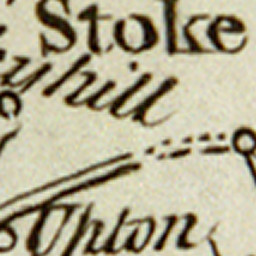 Stoke
yhill
Upton